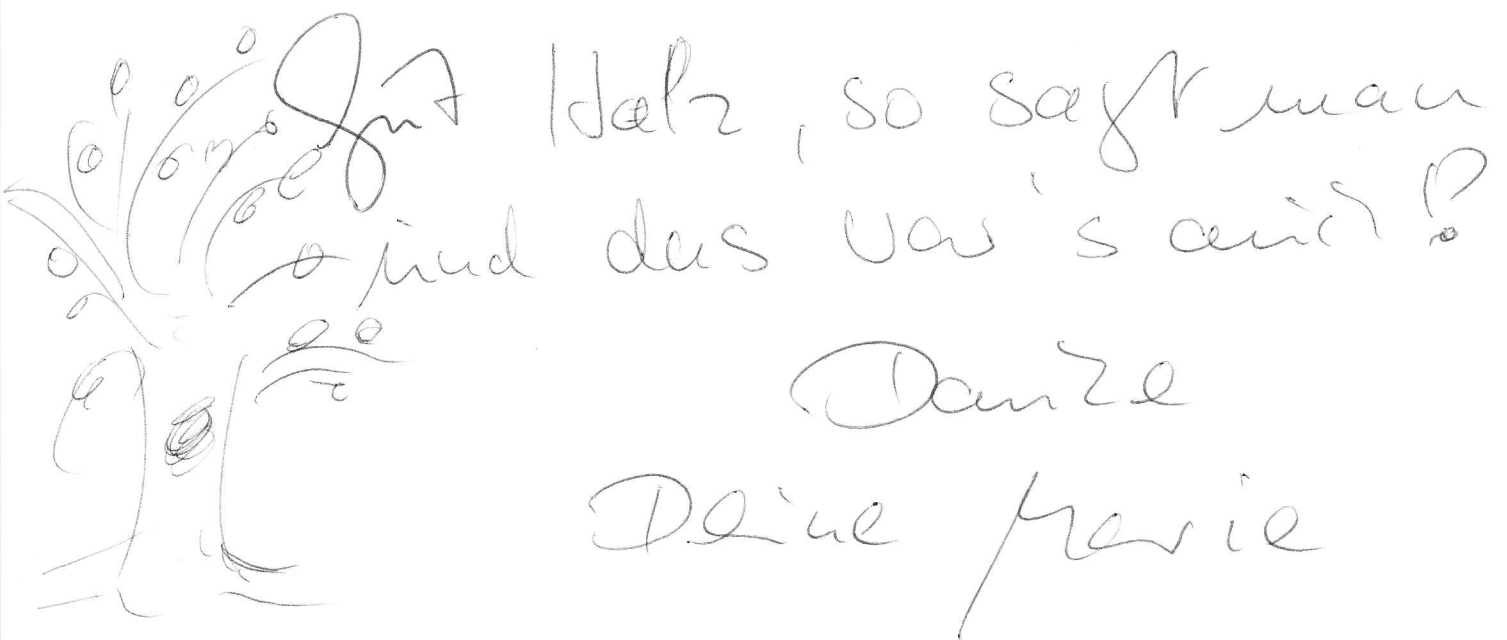 Gut Holz, so sagt man
und das war's auch!
Danke
Deine Marie